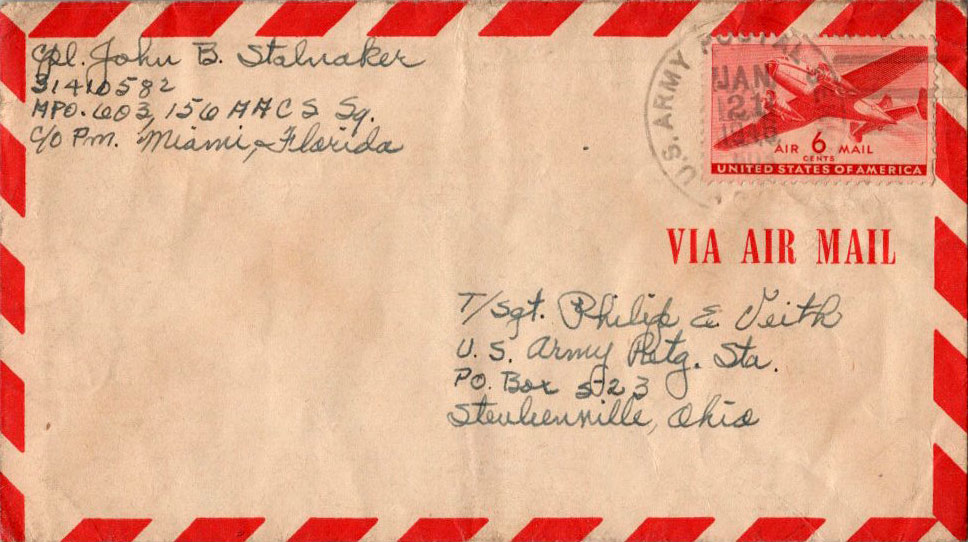 Cpl. John B. Stalnaker
31410582
APO. 603, 156 AACS Sq.
C/O P.m. Miami, Florida
U.S. ARMY POSTAL
JAN
21
AIR 6 MAIL
CENTS
UNITED STATES OF AMERICA
VIA AIR MAIL
T/Sgt. Philip E. Veith
U. S. Army Rctg. Sta.
PO. Box 523
Steubenville, Ohio